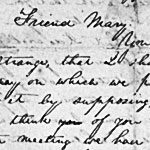 Friend Mary.
You
strange, that I sh
way on which we p
it by supposing
think you of you
meeting we have